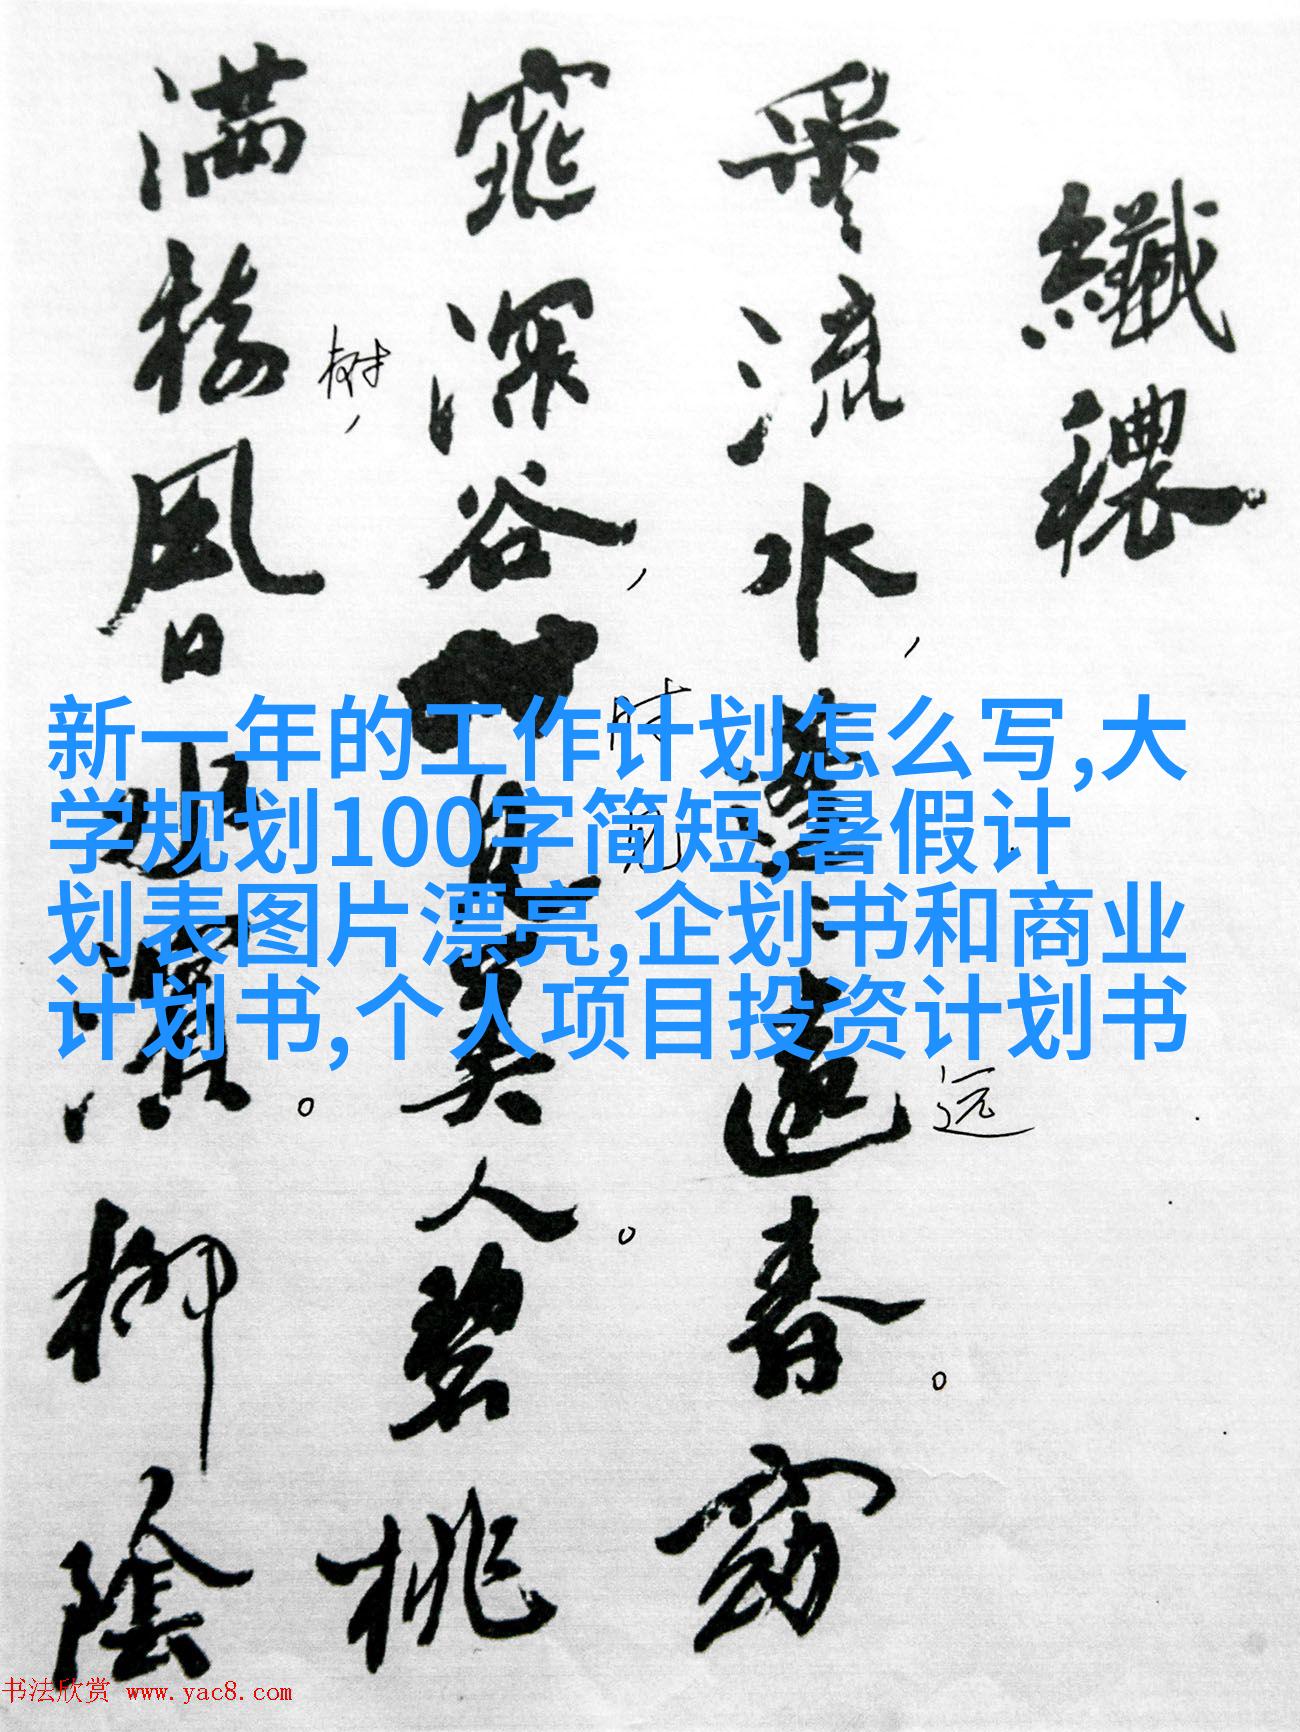 纖穠
采々流水，蓬々遠春。窈
远
窕深谷，見美人。碧桃
时见
满樹，風日水濱。柳陰
树
新一年的工作计划怎么写,大
学规划100字简短,暑假计
划表图片漂亮,企划书和商业
计划书,个人项目投资计划书
书法欣赏 www.yac8.com